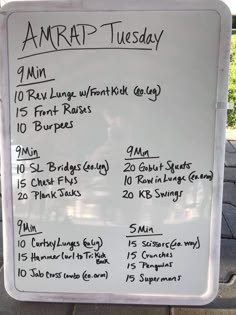 AMRAP Tuesday
9 Min
10 Rev Lunge w/Front Kick (ea.leg)
15 Front Raises
10 Burpees
9Min
10 SL Bridges (ea.leg)
15 Chest Flys
20 Plank Jacks
9Min
20 Goblet Squats
10 Row in Lunge (ea.arm)
20 KB Swings
9Min
10 Curtsy Lunges (ea.leg)
15 Hammer Curl to Tri Kick Back
10 Jab Cross combo (ea.arm)
5 Min
15 Scissors (ea.way)
15 Crunches
15 Penguins
15 Supermans